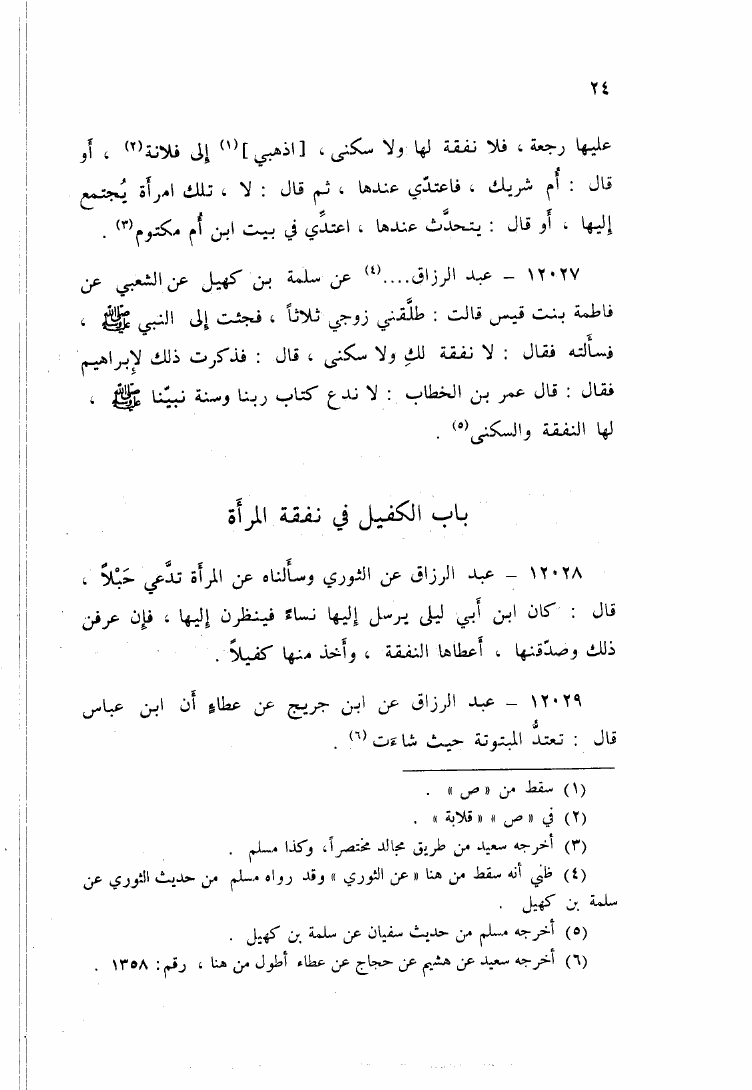 ٢٤
عليها رجعة ، فلا نفقة لها ولا سكنى ، [ اذهبي ](١) إلى فلانة(٢) ، أو
قال : أُم شريك ، فاعتدّي عندها ، ثم قال : لا ، تلك امرأة يُجتمع
إليها ، أو قال : يتحدَّث عندها ، اعتدِّي في بيت ابن أُم مكتوم(٣) .
١٢٠٢٧ – عبد الرزاق....(٤) عن سلمة بن كهيل عن الشعبي عن
فاطمة بنت قيس قالت : طلَّقني زوجي ثلاثاً ، فجئت إلى النبي ﷺ ،
فسأَلته فقال : لا نفقة لكِ ولا سكنى ، قال : فذكرت ذلك لإبراهيم
فقال : قال عمر بن الخطاب : لا ندع كتاب ربنا وسنة نبيّنا ﷺ ،
لها النفقة والسكنى(٥) .
باب الكفيل في نفقة المرأَة
١٢٠٢٨ – عبد الرزاق عن الثوري وسأَلناه عن المرأَة تدَّعي حَبْلاً ،
قال : كان ابن أَبي ليلى يرسل إليها نساءً فينظرن إليها ، فإن عرفن
ذلك وصدّقنها ، أَعطاها النفقة ، وأَخذ منها كفيلاً .
١٢٠٢٩ – عبد الرزاق عن ابن جريج عن عطاءٍ أَن ابن عباس
قال : تعتدُّ المبتوتة حيث شاءَت(٦) .
(١) سقط من « ص » .
(٢) في « ص » « قلابة » .
(٣) أخرجه سعيد من طريق مجالد مختصراً، وكذا مسلم .
(٤) ظني أنه سقط من هنا « عن الثوري » وقد رواه مسلم من حديث الثوري عن
سلمة بن كهيل .
(٥) أخرجه مسلم من حديث سفيان عن سلمة بن كهيل .
(٦) أخرجه سعيد عن هشيم عن حجاج عن عطاء أطول من هنا ، رقم: ١٣٥٨ .